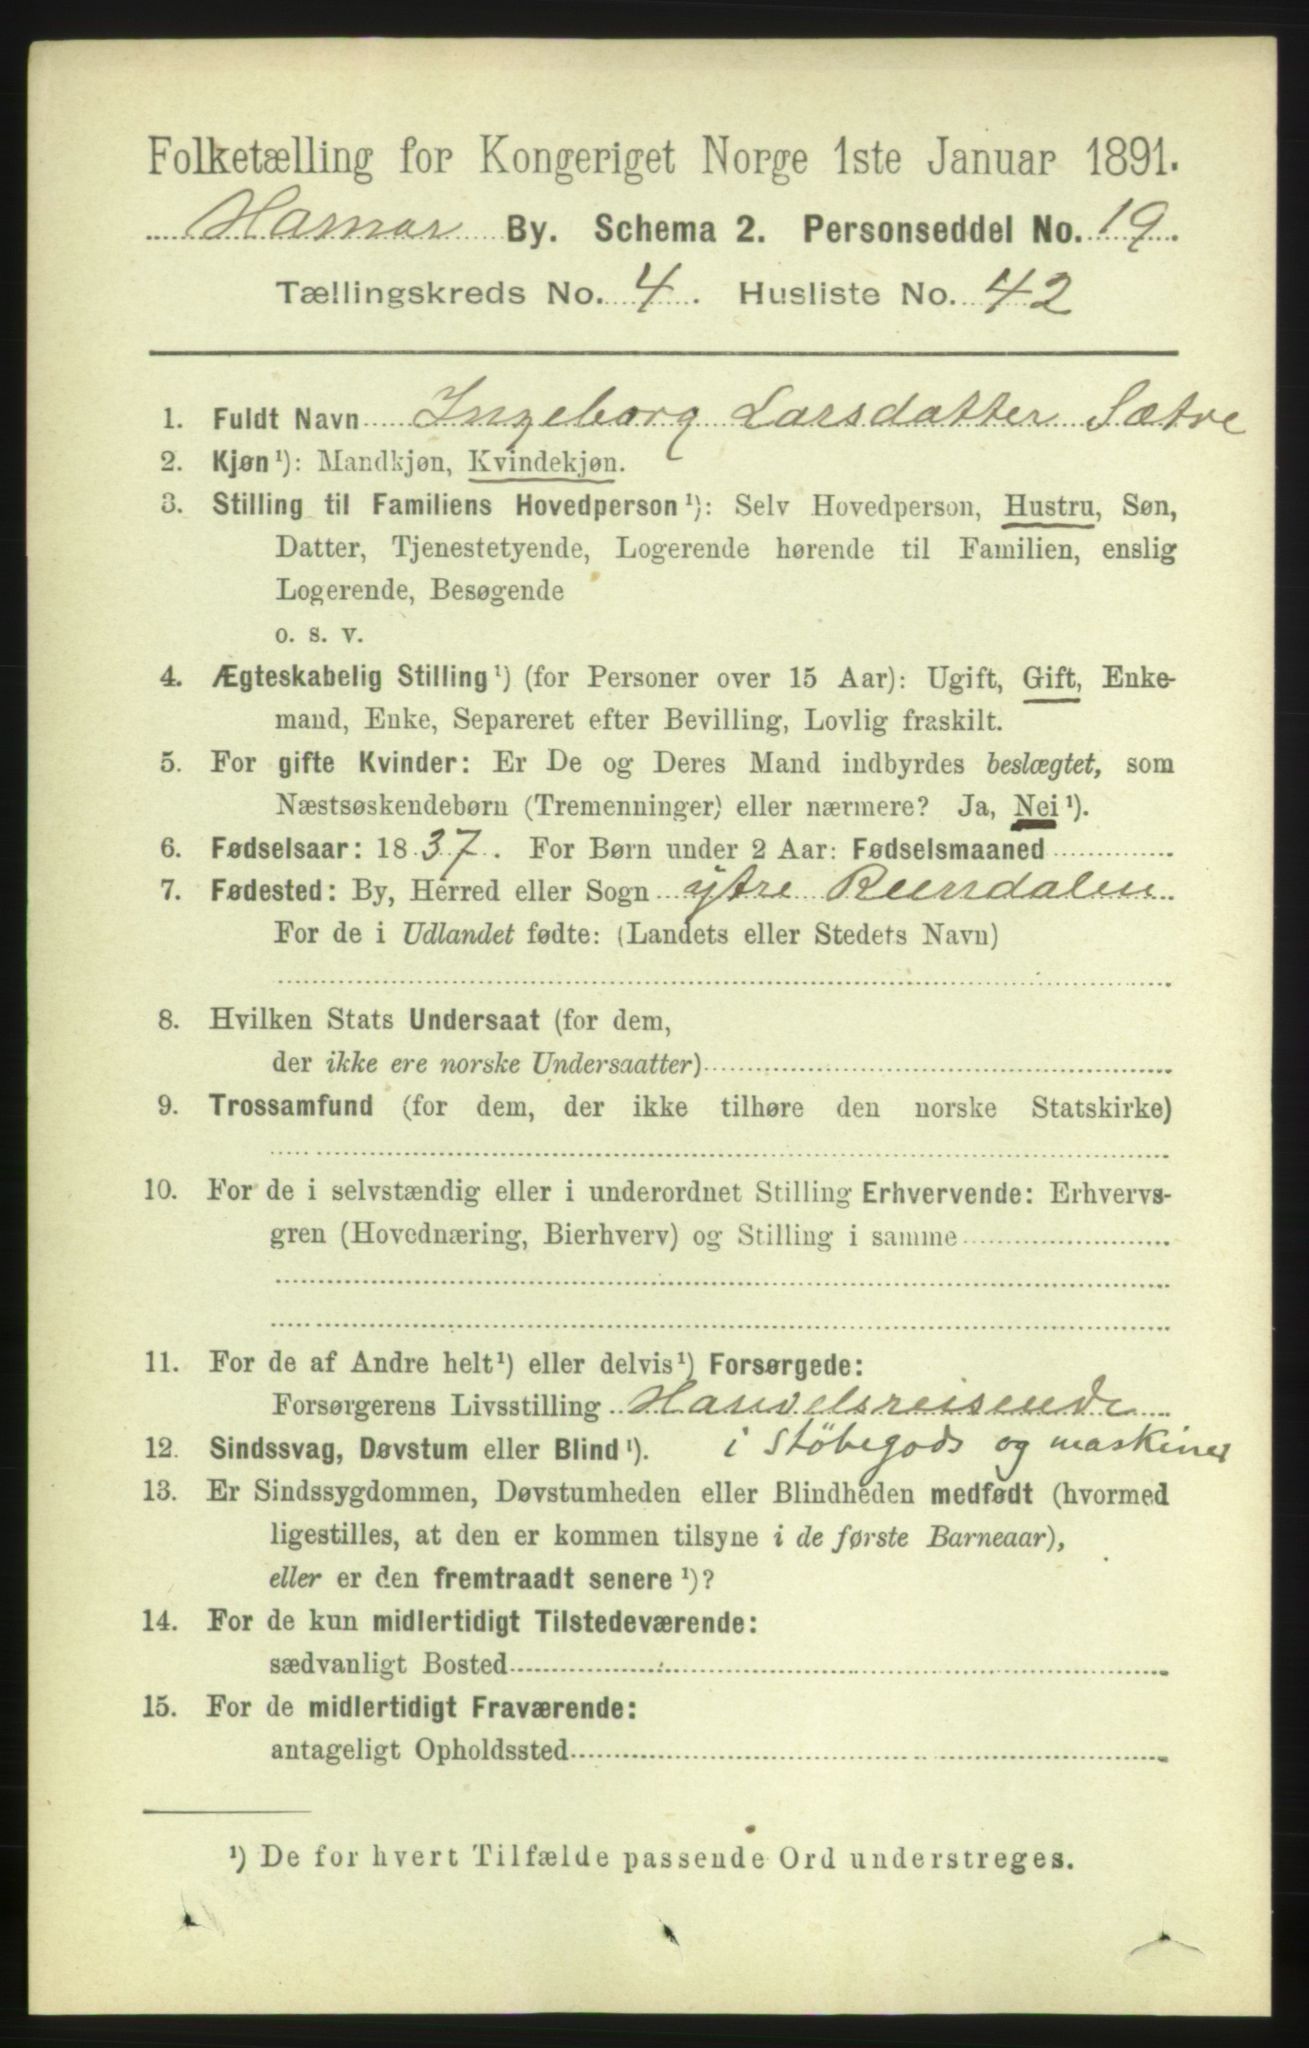 Folketælling for Kongeriget Norge 1ste Januar 1891.
Hamar By. Schema 2. Personseddel No. 19.
Tællingskreds No. 4. Husliste No. 42
1. Fuldt Navn Ingeborg Larsdatter Sætre
2. Kjøn¹): Mandkjøn, Kvindekjøn.
3. Stilling til Familiens Hovedperson¹): Selv Hovedperson, Hustru, Søn,
Datter, Tjenestetyende, Logerende hørende til Familien, enslig
Logerende, Besøgende
o. s. v.
4. Ægteskabelig Stilling¹) (for Personer over 15 Aar): Ugift, Gift, Enke-
mand, Enke, Separeret efter Bevilling, Lovlig fraskilt.
5. For gifte Kvinder: Er De og Deres Mand indbyrdes beslægtet, som
Næstsøskendebørn (Tremenninger) eller nærmere? Ja, Nei¹).
6. Fødselsaar: 1837. For Børn under 2 Aar: Fødselsmaaned
7. Fødested: By, Herred eller Sogn ytre Rensdalen
For de i Udlandet fødte: (Landets eller Stedets Navn)
8. Hvilken Stats Undersaat (for dem,
der ikke ere norske Undersaatter)
9. Trossamfund (for dem, der ikke tilhøre den norske Statskirke)
10. For de i selvstændig eller i underordnet Stilling Erhvervende: Erhvervs-
gren (Hovednæring, Bierhverv) og Stilling i samme
11. For de af Andre helt¹) eller delvis¹) Forsørgede:
Forsørgerens Livsstilling Handelsreisende
12. Sindssvag, Døvstum eller Blind¹). i Støbegods og maskiner
13. Er Sindssygdommen, Døvstumheden eller Blindheden medfødt (hvormed
ligestilles, at den er kommen tilsyne i de første Barneaar),
eller er den fremtraadt senere¹)?
14. For de kun midlertidigt Tilstedeværende:
sædvanligt Bosted
15. For de midlertidigt Fraværende:
antageligt Opholdssted
¹) De for hvert Tilfælde passende Ord understreges.